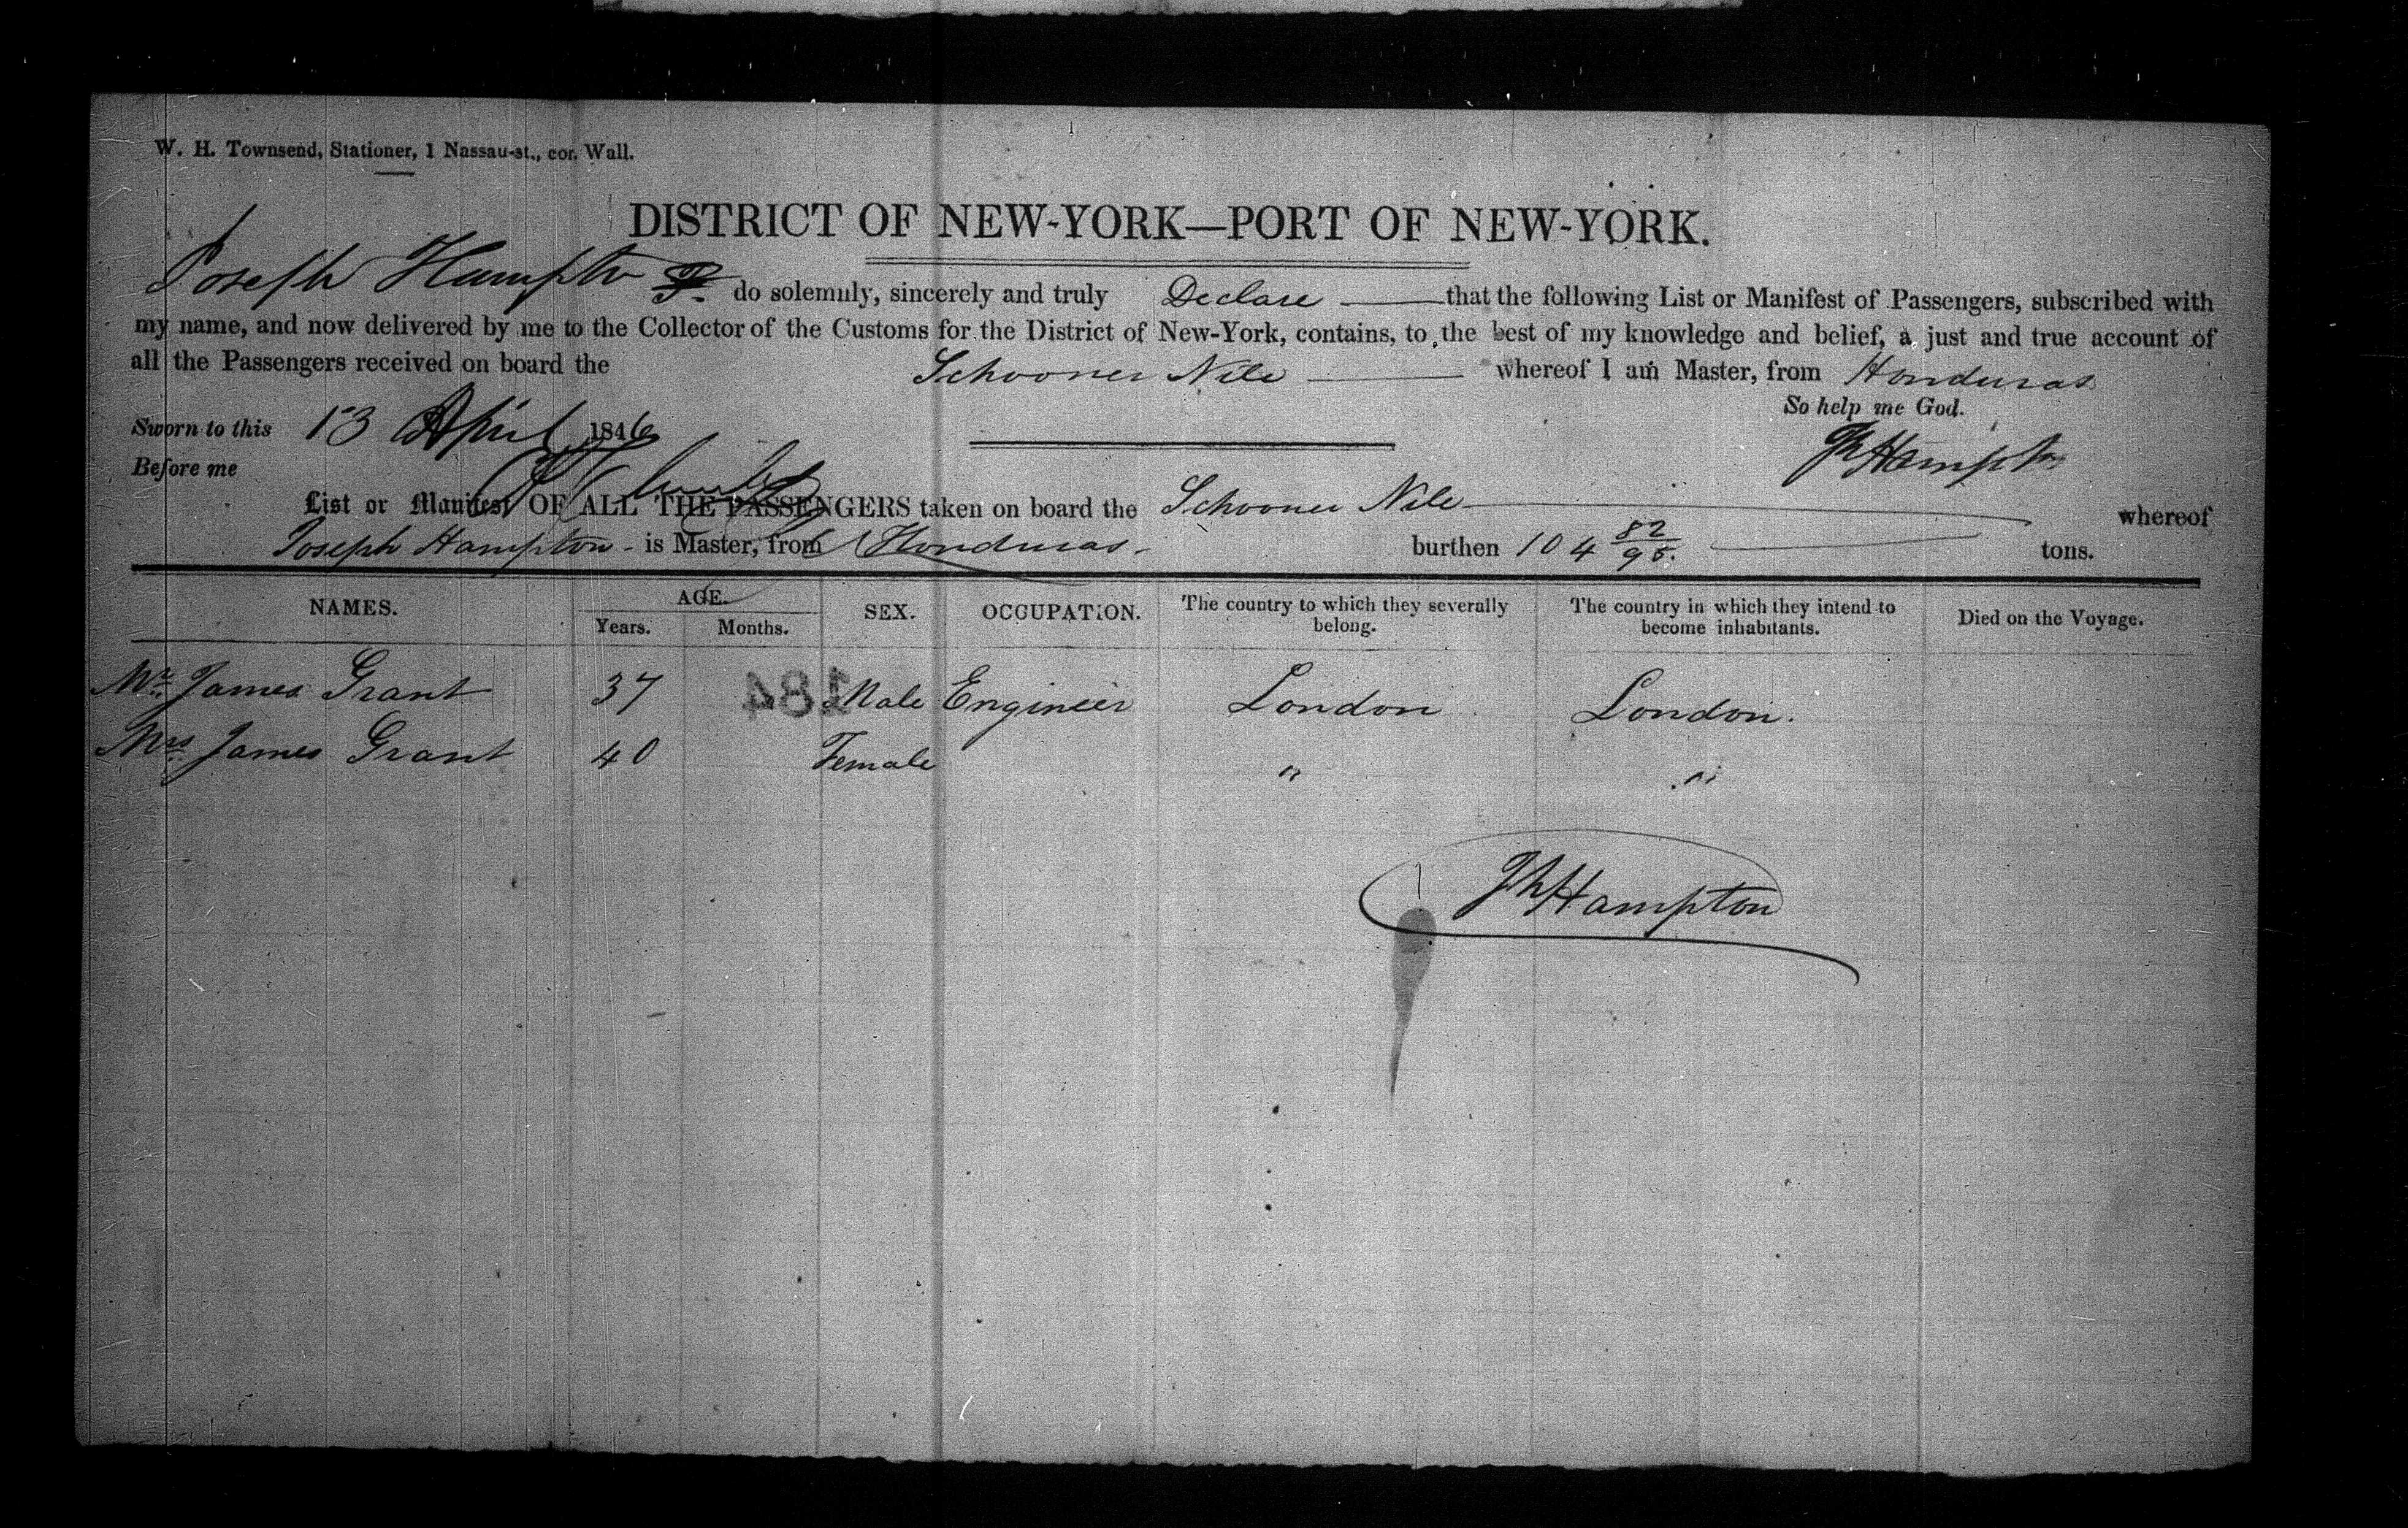 W. H. Townsend, Stationer, 1 Nassau-st., cor. Wall.
DISTRICT OF NEW-YORK—PORT OF NEW-YORK.
Joseph Hampton do solemnly, sincerely and truly Declare that the following List or Manifest of Passengers, subscribed with
my name, and now delivered by me to the Collector of the Customs for the District of New-York, contains, to the best of my knowledge and belief, a just and true account of
all the Passengers received on board the Schooner Nile whereof I am Master, from Honduras
So help me God.
Sworn to this 13 April 1846
Jh Hampton
Before me
List or Manifest OF ALL THE PASSENGERS taken on board the Schooner Nile whereof
Joseph Hampton is Master, from Honduras. burthen 104 82/95. tons.
NAMES. AGE. Years. Months. SEX. OCCUPATION. The country to which they severally belong. The country in which they intend to become inhabitants. Died on the Voyage.
Mr. James Grant 37 Male Engineer London London.
184
Mrs. James Grant 40 Female " "
Jh Hampton